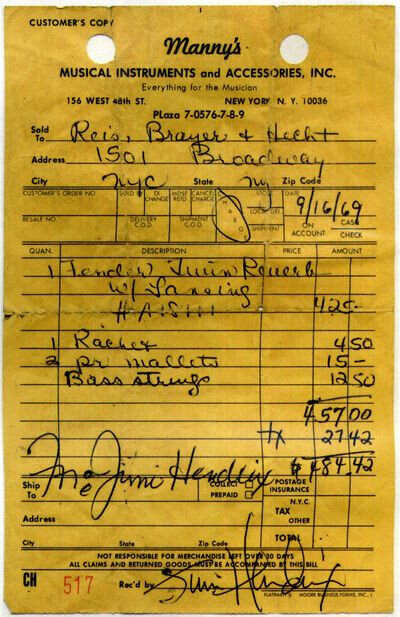 CUSTOMER'S COPY
Manny's
MUSICAL INSTRUMENTS and ACCESSORIES, INC.
Everything for the Musician
156 WEST 48th ST. NEW YORK N. Y. 10036
PLaza 7-0576-7-8-9
Sold To Reis, Brayer & Hecht
Address 1501 Broadway
City NYC State NY Zip Code
CUSTOMER'S ORDER NO. SOLD BY EX-CHANGE MDSE RETD CANCEL CHARGE CHARG STORE LOCAL DEL. DATE 9/16/69
RESALE NO. DELIVERY C.O.D. SHIPMENT C.O.D. SHIPMENT ON ACCOUNT CASH CHECK
QUAN. DESCRIPTION PRICE AMOUNT
1 Fender Twin Reverb
w/ Lansing
425-
1 Rachet 4 50
2 pr mallets 15-
Bass strings 12 50
457 00
tx 27 42
$484.42
Mr Jimi Hendrix
Ship To COLLECT PREPAID POSTAGE INSURANCE
N.Y.C. TAX OTHER
Address
City State Zip Code TOTAL
NOT RESPONSIBLE FOR MERCHANDISE LEFT OVER 30 DAYS
ALL CLAIMS AND RETURNED GOODS MUST BE ACCOMPANIED BY THIS BILL
CH 517 Rec'd by Jimi Hendrix
FLATPAKIT MOORE BUSINESS FORMS, INC.